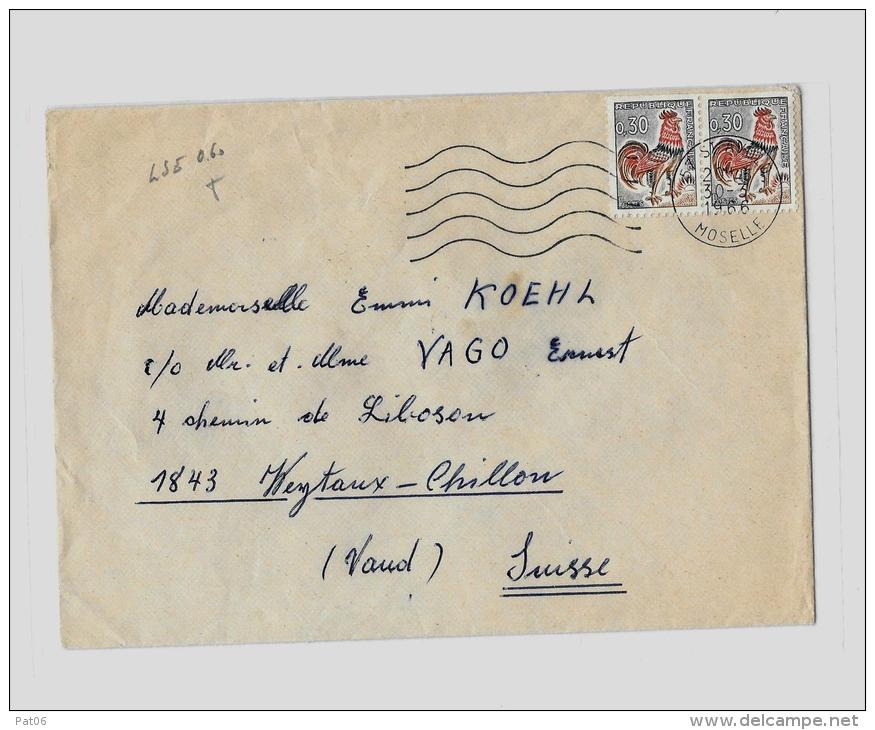 REPUBLIQUE FRANÇAISE
0,30
REPUBLIQUE FRANÇAISE
0,30
30-3
1966
MOSELLE
LSE 0.60
Mademoiselle Emmi KOEHL
c/o Mr. et. Mme VAGO Ernest
4 chemin de Liboson
1843 Veytaux - Chillon
(Vaud) Suisse
Pat06
www.delcampe.net